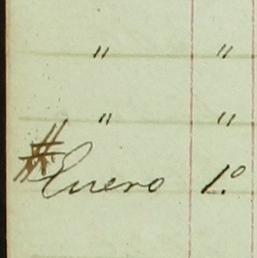 " "
" "
# Enero 1.º